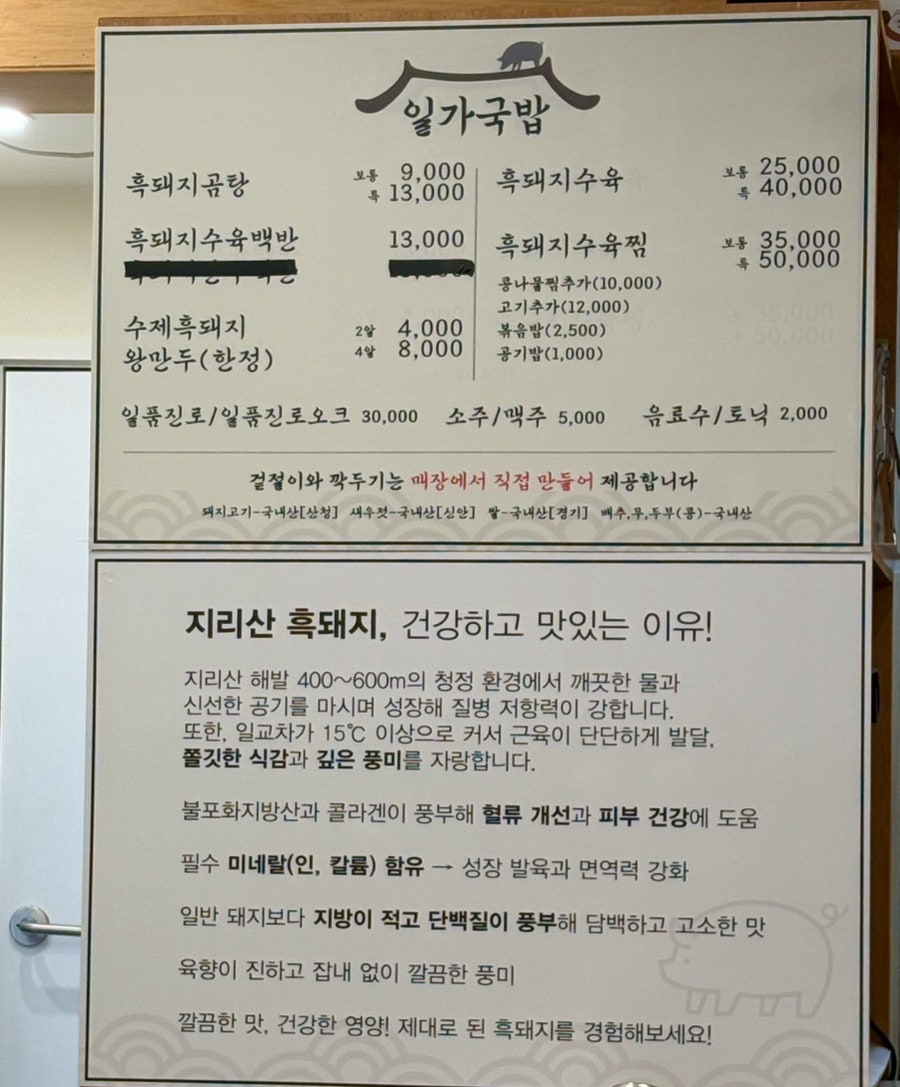 일가국밥
흑돼지곰탕 보통 9,000
특 13,000
흑돼지수육백반 13,000
수제흑돼지 2알 4,000
왕만두(한정) 4알 8,000
흑돼지수육 보통 25,000
특 40,000
흑돼지수육찜 보통 35,000
특 50,000
콩나물찜추가(10,000)
고기추가(12,000)
볶음밥(2,500)
공기밥(1,000)
일품진로/일품진로오크 30,000 소주/맥주 5,000 음료수/토닉 2,000
겉절이와 깍두기는 매장에서 직접 만들어 제공합니다
돼지고기-국내산[산청] 새우젓-국내산[신안] 쌀-국내산[경기] 배추,무,두부(콩)-국내산
지리산 흑돼지, 건강하고 맛있는 이유!
지리산 해발 400~600m의 청정 환경에서 깨끗한 물과
신선한 공기를 마시며 성장해 질병 저항력이 강합니다.
또한, 일교차가 15℃ 이상으로 커서 근육이 단단하게 발달,
쫄깃한 식감과 깊은 풍미를 자랑합니다.
불포화지방산과 콜라겐이 풍부해 혈류 개선과 피부 건강에 도움
필수 미네랄(인, 칼륨) 함유 → 성장 발육과 면역력 강화
일반 돼지보다 지방이 적고 단백질이 풍부해 담백하고 고소한 맛
육향이 진하고 잡내 없이 깔끔한 풍미
깔끔한 맛, 건강한 영양! 제대로 된 흑돼지를 경험해보세요!